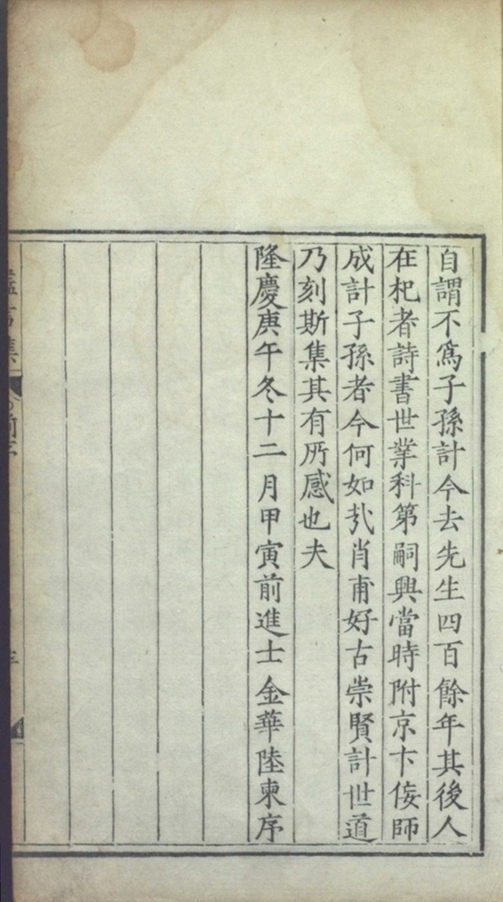 自謂不爲子孫計今去先生四百餘年其後人
在杞者詩書世業科第嗣興當時附京卞侫師
成計子孫者今何如㢤肖甫好古崇賢計世道
乃刻斯集其有所感也夫
隆慶庚午冬十二月甲寅前進士金華陸柬序